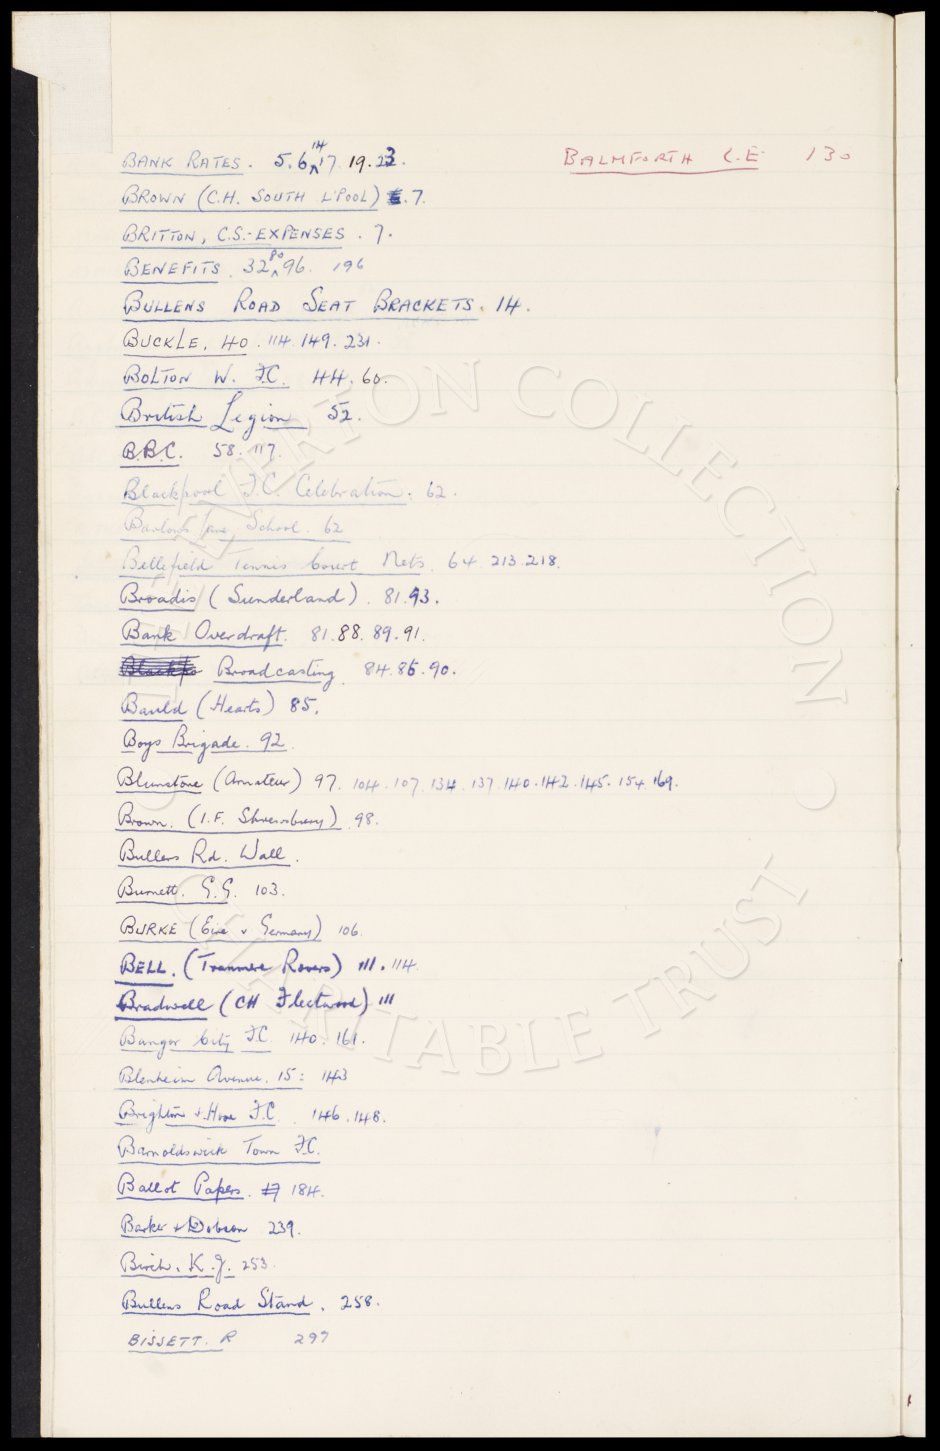 BANK RATES. 5. 6. 14 17. 19. 23.
BALMFORTH C.E 130
BROWN (C.H. SOUTH L'POOL) 7.
BRITTON, C.S. - EXPENSES. 7.
BENEFITS. 32. 80 96. 196
BULLENS ROAD SEAT BRACKETS. 14.
BUCKLE. 40. 114. 149. 231.
BOLTON W. F.C. 44. 60.
British Legion 52.
B.B.C. 58. 117.
Blackpool F.C. Celebration. 62.
Lane School. 62
Bellefield Tennis Court Nets. 64. 213. 218.
Broadis (Sunderland). 81. 93.
Bank Overdraft. 81. 88. 89. 91.
Broadcasting. 84. 86. 90.
Bauld (Hearts) 85.
Boys Brigade. 92.
Blunstone (Amateur) 97. 104. 107. 134. 137. 140. 142. 145. 154 169.
Brown. (I.F. Shrewsbury) 98.
Bullens Rd. Wall.
Burnett. G.G. 103.
BURKE (Eire v Germany) 106.
BELL. (Tranmere Rovers) 111. 114.
Bradwell (CH Fleetwood) 111
Bangor City F.C. 140. 161.
Blenheim Avenue. 15: 143
Brighton & Hove F.C. 146. 148.
Barnoldswick Town F.C.
Ballot Papers. 184.
Barker & Dobson 239.
Birch. K.J. 253.
Bullens Road Stand. 258.
BISSETT. R 297
EVERTON COLLECTION
CHARITABLE TRUST